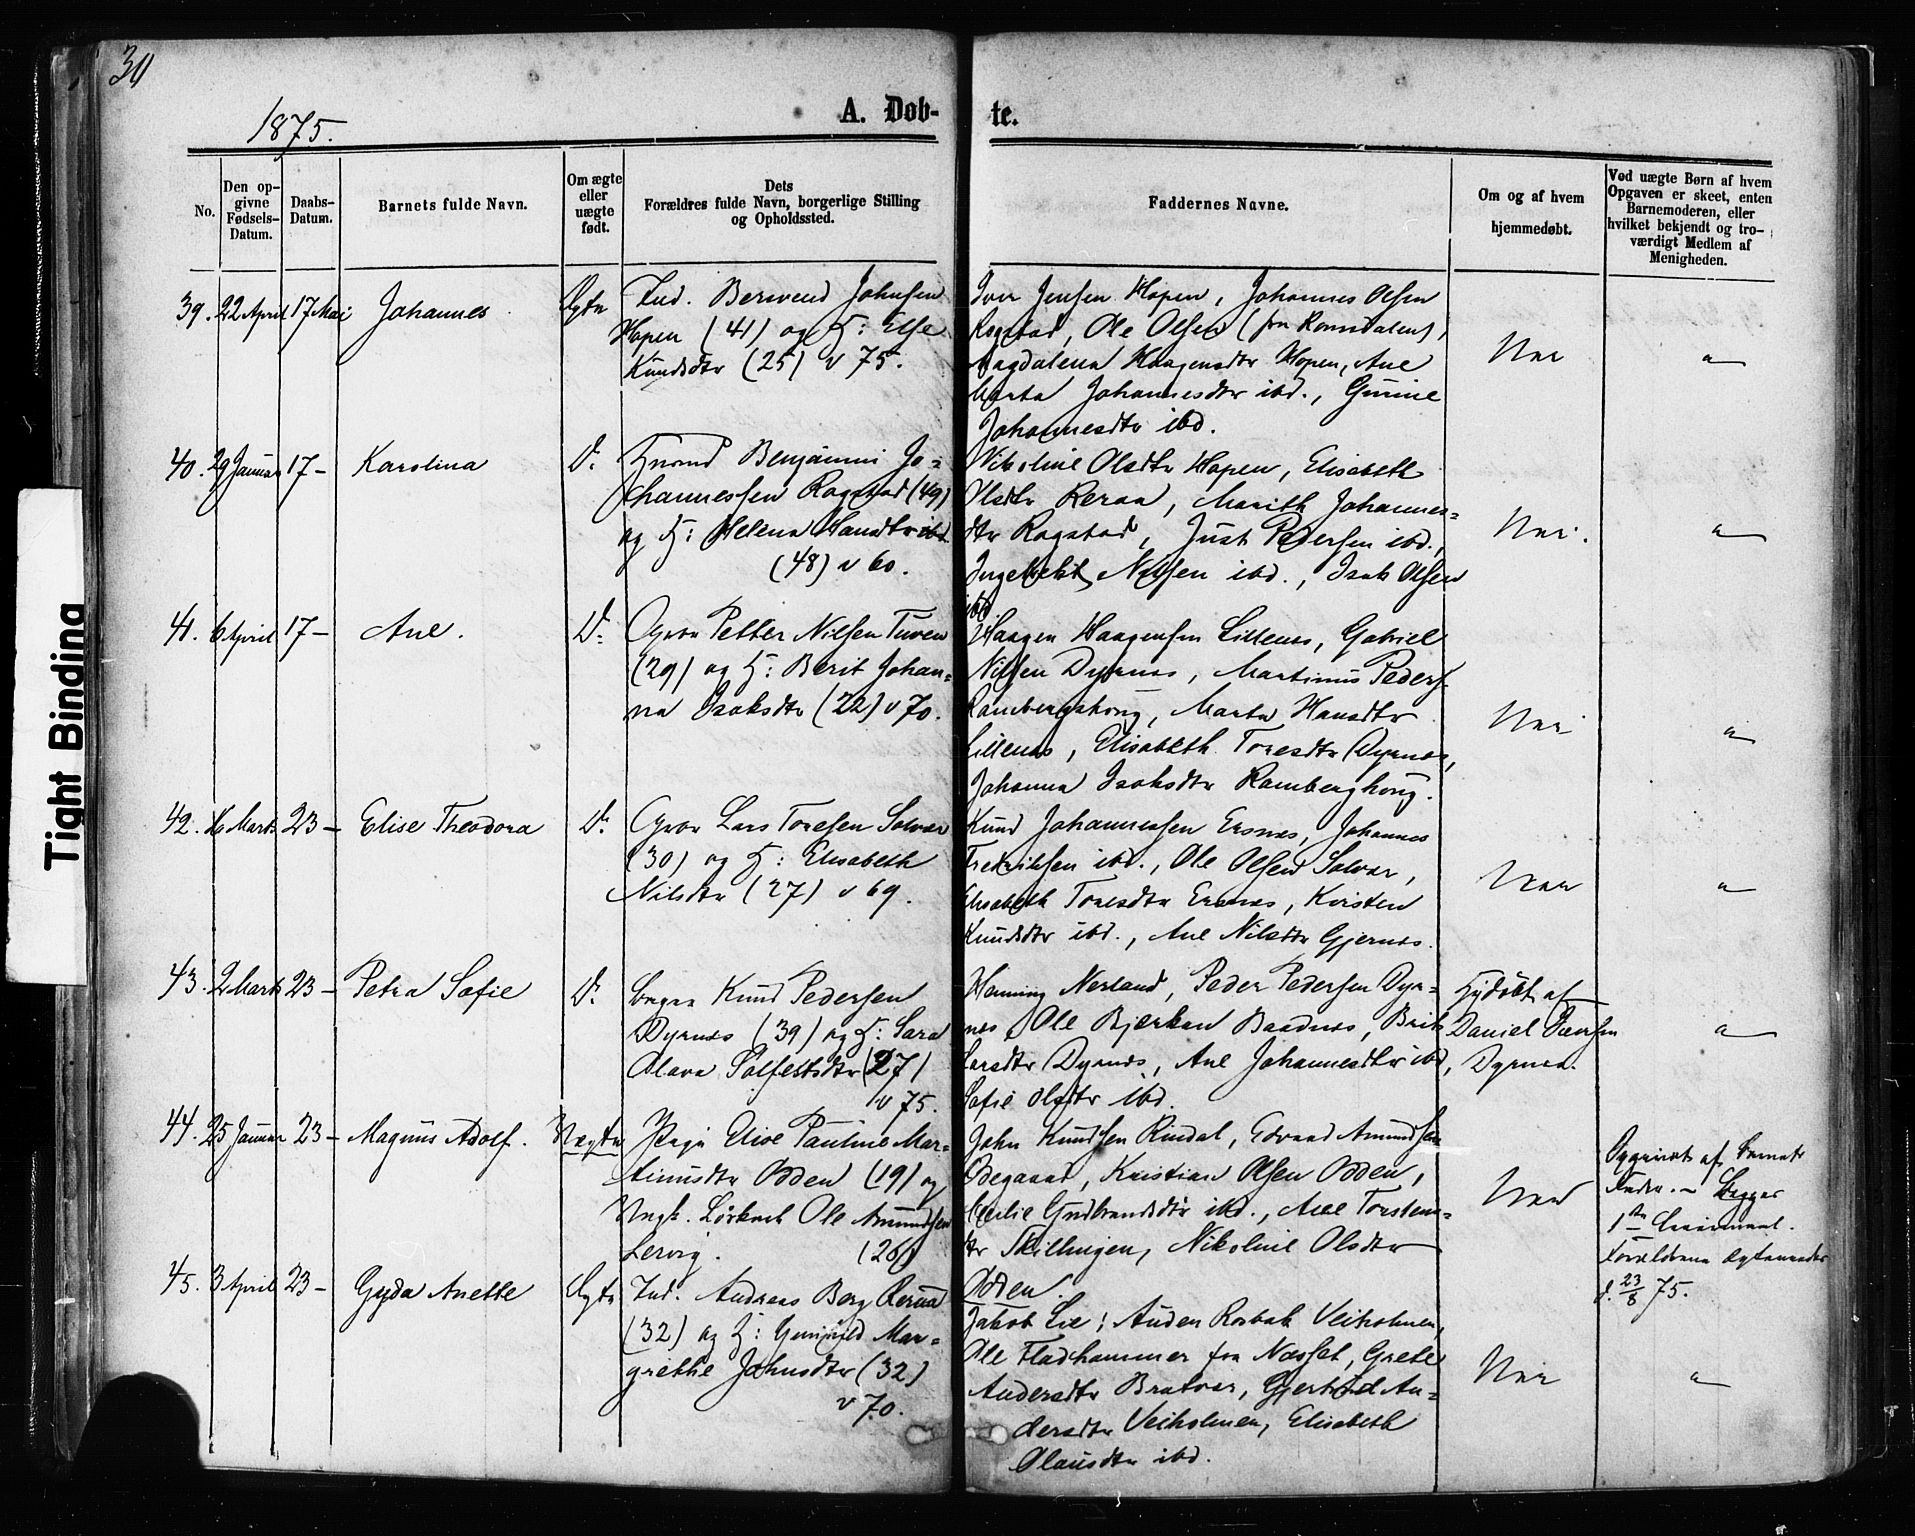 30
1875.
A. Døb-
te.
No.
Den op-
givne
Fødsels-
Datum.
Daabs-
Datum.
Barnets fulde Navn.
Om ægte
eller
uægte
født.
Dets
Forældres fulde Navn, borgerlige Stilling
og Opholdssted.
Faddernes Navne.
Om og af hvem
hjemmedøbt.
Ved uægte Børn af hvem
Opgaven er skeet, enten
Barnemoderen, eller
hvilket bekjendt og tro-
værdigt Medlem af
Menigheden.
39. 22 April 17 Mai Johannes Ægte
Ind. Berwend Johnsen
Hopen (41) og H: Else
Knudsdtr (25) v 75.
Iver Jensen Hopen, Johannes Olsen
Rogstad, Ole Olsen (fra Romsdalen),
Magdalena Haagensdtr Hopen, Ane
Marta Johannesdtr ibd., Gurine
Johannesdtr ibd.
Nei
"
40. 29 Januar 17 - Karolina D.
Husmd Benjamin Jo-
hannessen Rogstad (49)
og H: Helena Hansdtr ibd.
(48) v 60.
Nikoline Olsdtr Hopen, Elisabeth
Olsdtr Reraa, Marith Johannes-
dtr Rogstad, Just Pedersen ibd.,
Ingebrikt Nilsen ibd., Isak Olsen
ibd.
Nei.
"
41. 6 April 17 - Ane. D.
Gbr Petter Nilsen Tuven
(29) og H: Berit Johan-
na Isaksdtr (22) v 70.
Haagen Haagensen Lillenes, Gabriel
Nilsen Dyrnes, Martinus Peders.
Ramberghoug, Marta Hansdtr
Lillenes, Elisabeth Toresdtr Dyrnes,
Johanna Isaksdtr Ramberghoug.
Nei
"
42. 16 Marts 23 - Elise Theodora D.
Gbr Lars Toresen Solvær
(30) og H: Elisabeth
Nilsdtr (27) v 69.
Knud Johannessen Ersnes, Johannes
Fredriksen ibd., Ole Olsen Solvær,
Elisabeth Toresdtr Ersnes, Kirsten
Knudsdtr ibd., Ane Nilsdtr Gjernes.
Nei
"
43. 2 Marts 23 - Petra Sofie D.
Knud Pedersen
Dyrnes (39) og H: Sara
Olava Solfestsdtr (27)
v 75.
Henning Nerland, Peder Pedersen Dyr-
nes, Ole Bjerkan Baadnes, Brit
Larsdtr Dyrnes, Ane Johannesdtr ibd,
Sofie Olsdtr ibd.
Hjdöbt af
Daniel Iversen
Dyrnes.
"
44. 25 Januar 23 - Magnus Adolf. Uægte
Pige Elise Pauline Mar-
tinusdtr Odden (19) og
Ungk. Ole Amundsen
Lervig. (26)
John Knudsen Rindal, Edvard Amundsen
Ødegaard, Kristian Olsen Odden,
Gudbrandsdtr ibd., Ane Torstens-
dtr Skillingen, Nikoline Olsdtr
Odden.
Nei
Opgivet af Barnets
Fader. - Begges
1ste Leiermaal.
Forældrene
d. 23/8 75.
45. 3 April 23 - Gyda Anette Ægte
Ind. Andreas Berg Reraa
(32) og H: Gunhild Mar-
grethe Johnsdtr (32)
v 70.
Jakob Lie, Anden Rosbak Veiholmen,
Ole Fladhammer fra Næsset, Grete
Andersdtr Bratvær, Gjertrud An-
dersdtr Veiholmen, Elisabeth
Olausdtr ibd.
Nei
"
Tight Binding